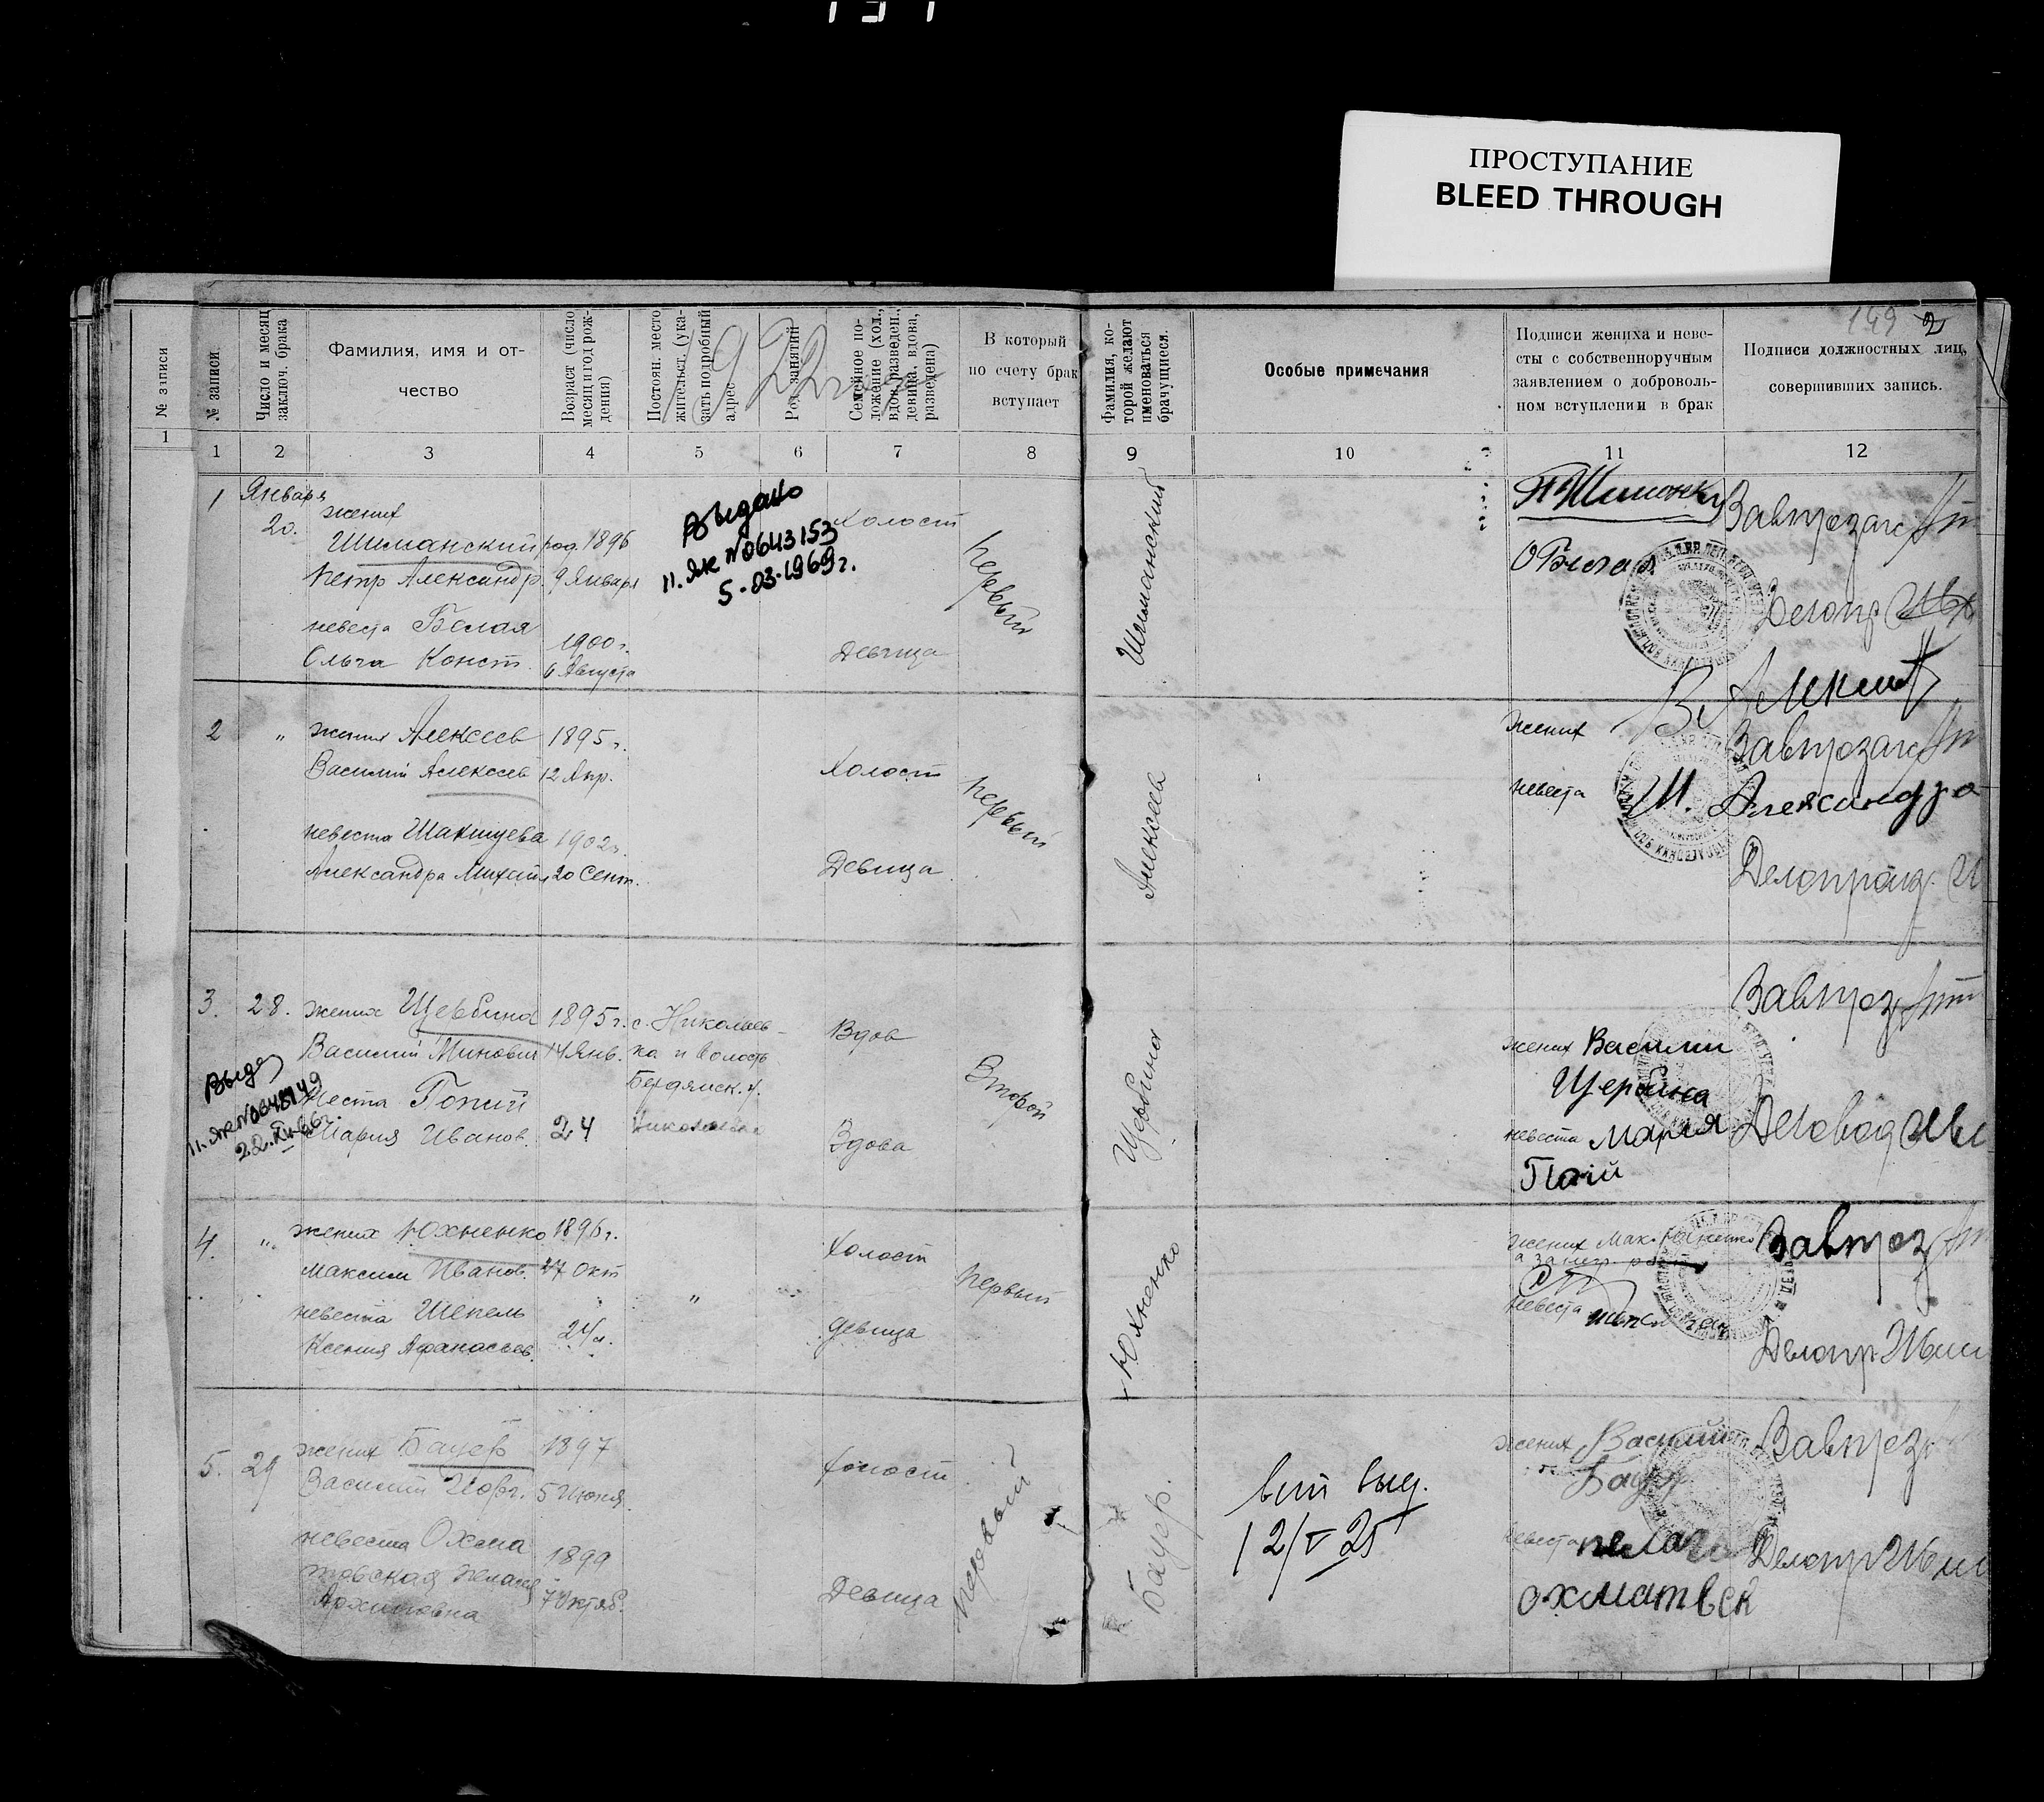 ПРОСТУПАНИЕ
BLEED THROUGH
149 2
1922 года
№ записи
1
№ записи
Число и месяц
заключ. брака
Фамилия, имя и от-
чество
Возраст (число
месяц и год рож-
дения)
Постоян. место
жительст. (ука-
зать подробный
адрес
Род занятий
Семейное по-
ложение (хол.,
вдов, разведен.,
девица, вдова,
разведена)
В который
по счету брак
вступает
Фамилия, ко-
торой желают
именоваться
брачущиеся.
Особые примечания
Подписи жениха и неве-
сты с собственноручным
заявлением о доброволь-
ном вступлении в брак
Подписи должностных лиц,
совершивших запись.
1 2 3 4 5 6 7 8 9 10 11 12
1
Января
20.
жених
Шиманский
Петр Александр.
род. 1896
9 Января
невеста Белая
Ольга Конст.
1900 г.
6 Августа
Выдано
II. ЯЖ №0643153
5-03-1969 г.
Холост
Девица
первый
Шиманский
О Белая
Завтрезагс
Делопр
2
"
жених Алексеев
Василий Алексеев
1895 г.
12 Апр.
невеста
Александра Михайл
1902 г.
20 Сент.
Холост
Девица
первый
Алексеев
жених
невеста
М. Александра
Завтрезагс
Делопроизв.
3.
28.
жених Щербина
Василий Минович
1895 г.
14 Янв.
с. Николаев-
ка и волость
Бердянск. у.
невеста Попий
Мария Иванов.
24
Николаевка
22.XI-66
Вдов
Вдова
Второй
Щербина
жених Васили
Щербина
невеста Мария
Завтрез
Деловод
4.
"
жених Юхненко
Максим Иванов.
1896 г.
27 Окт
невеста Шепель
Ксения Афанасьев.
24 л.
"
Холост
девица
первый
Юхненко
жених Мак. Юхненко
невеста
Завтрез
Делопр
5.
29
жених Бауер
Василий Георг.
1897
5 Июня.
невеста Охма
товская Пелагея
Архиповна
1899
7 Октяб.
Холост
Девица
Первый
Бауер.
выд.
12/V 25
жених Василий
Бауер
невеста пелаге
охматвск
Завтрез
Делопр